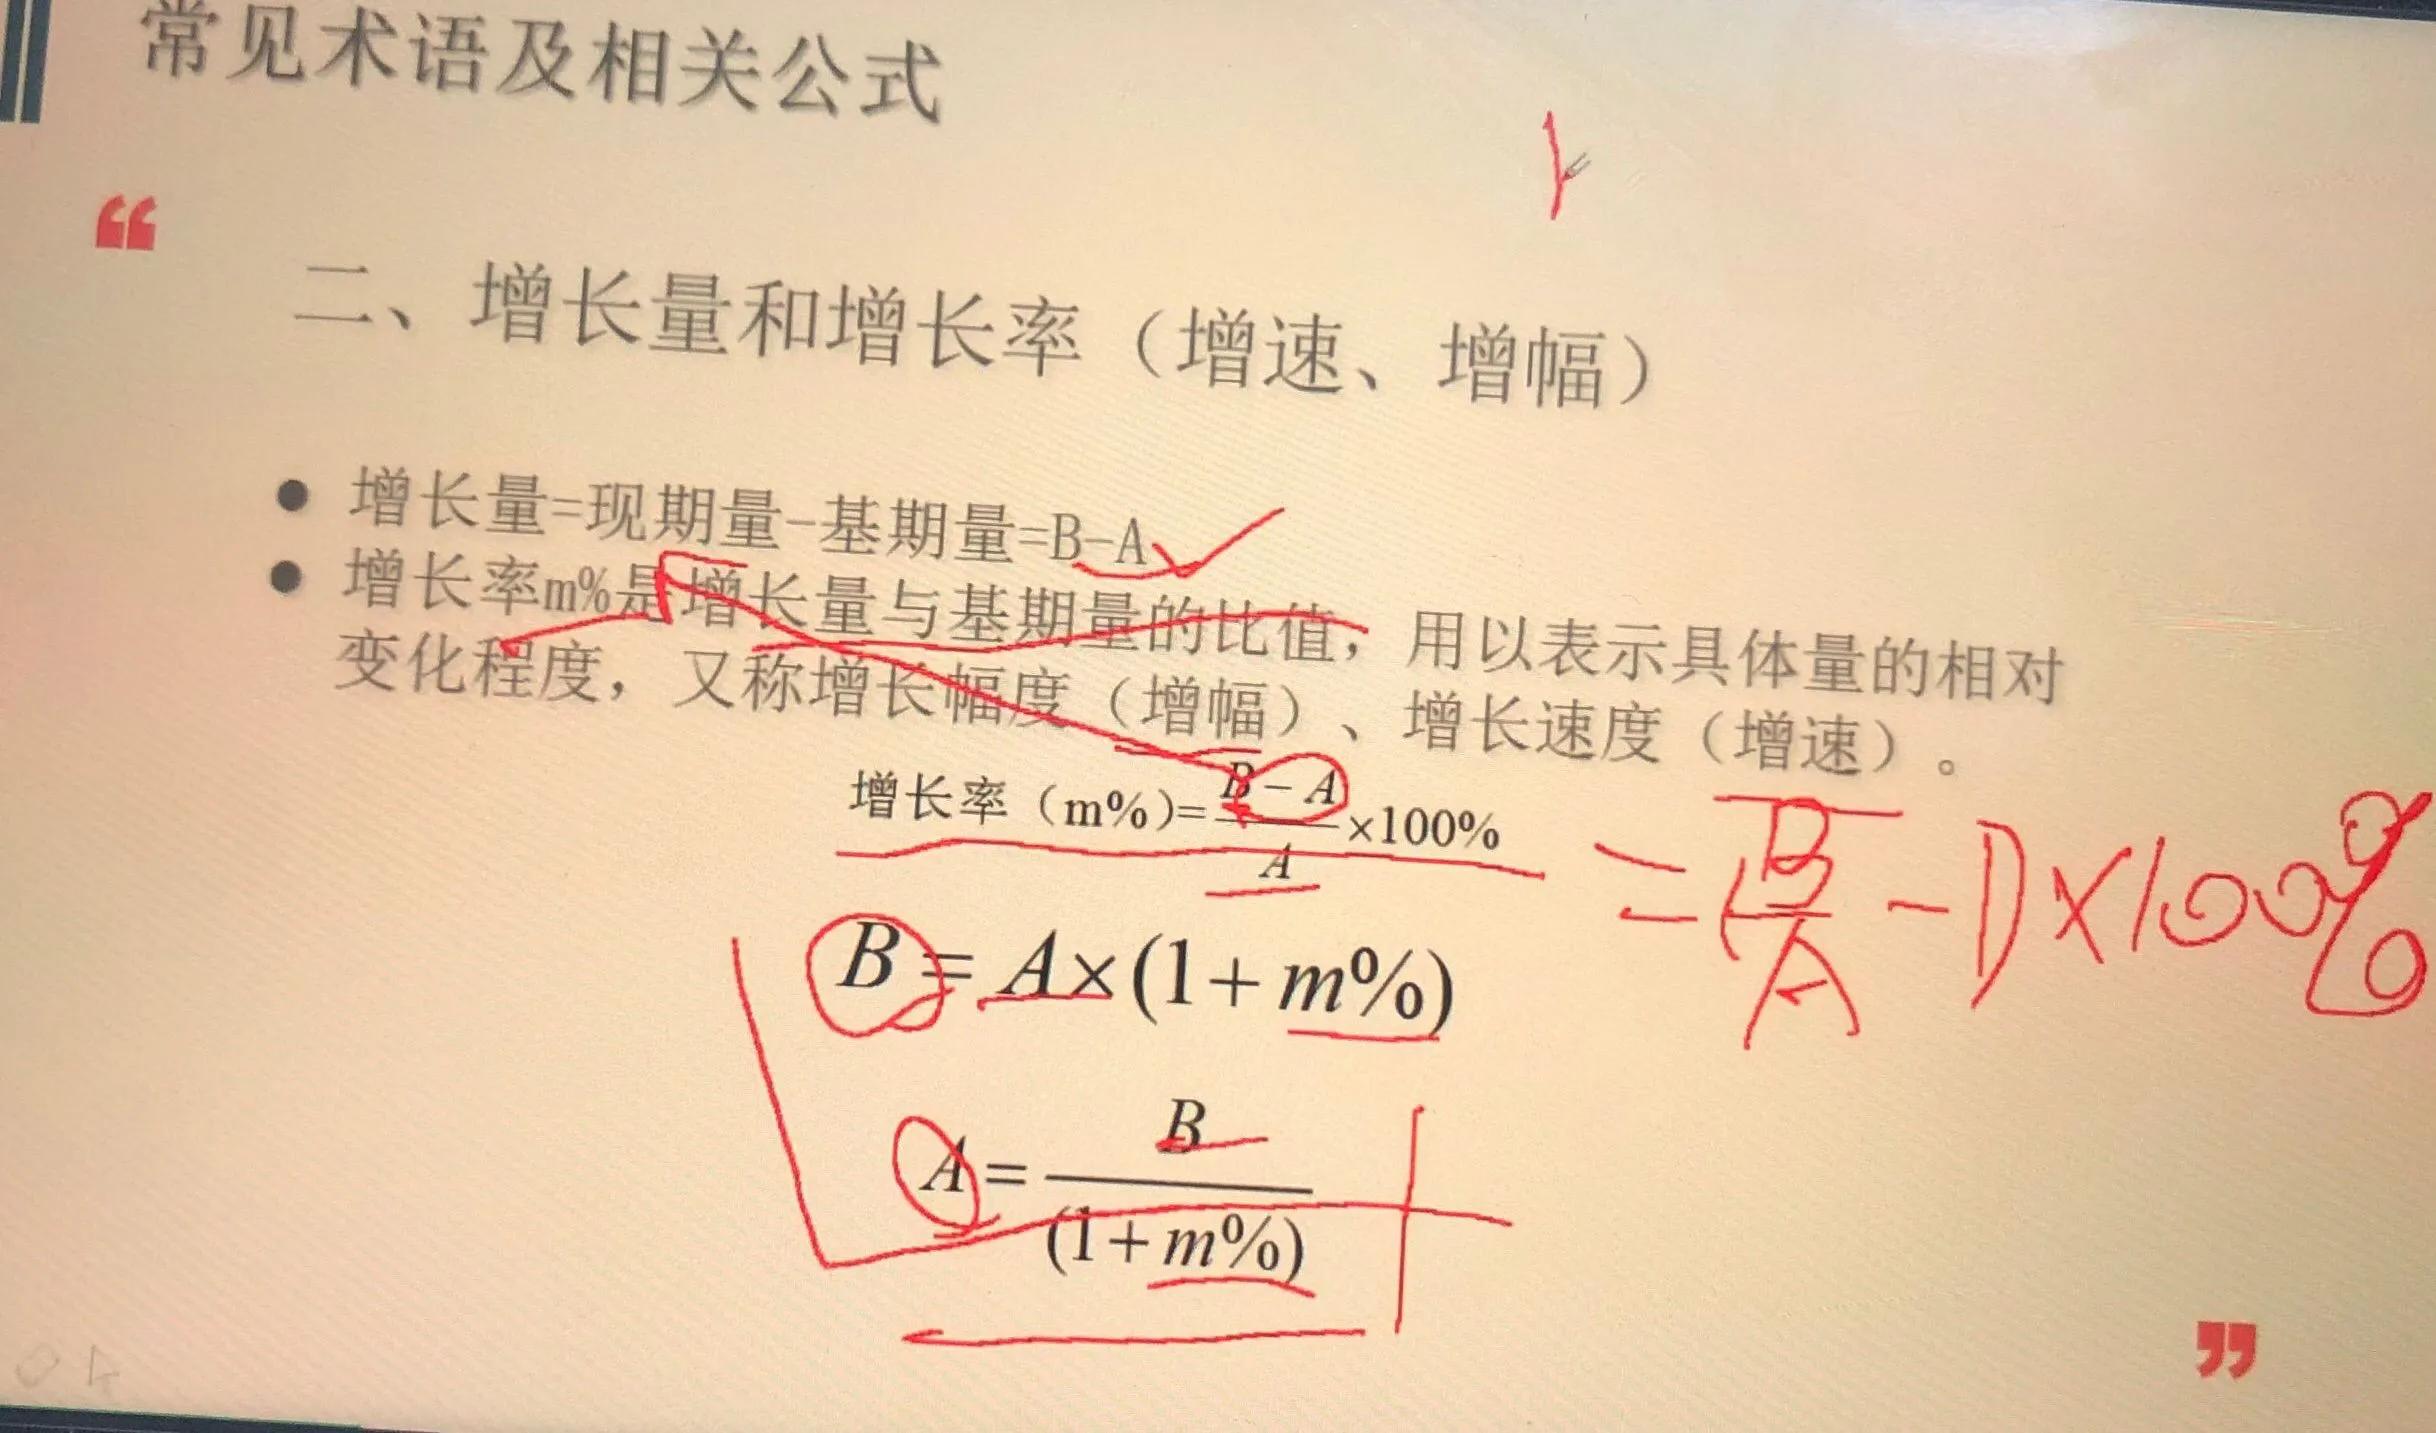 常见术语及相关公式
“
二、增长量和增长率（增速、增幅）
● 增长量=现期量-基期量=B-A
● 增长率m%是增长量与基期量的比值，用以表示具体量的相对
变化程度，又称增长幅度（增幅）、增长速度（增速）。
增长率（m%)=\frac{B-A}{A}×100% =(\frac{B}{A}-1)×100%
B=A×(1+m%)
A=\frac{B}{(1+m%)}
”